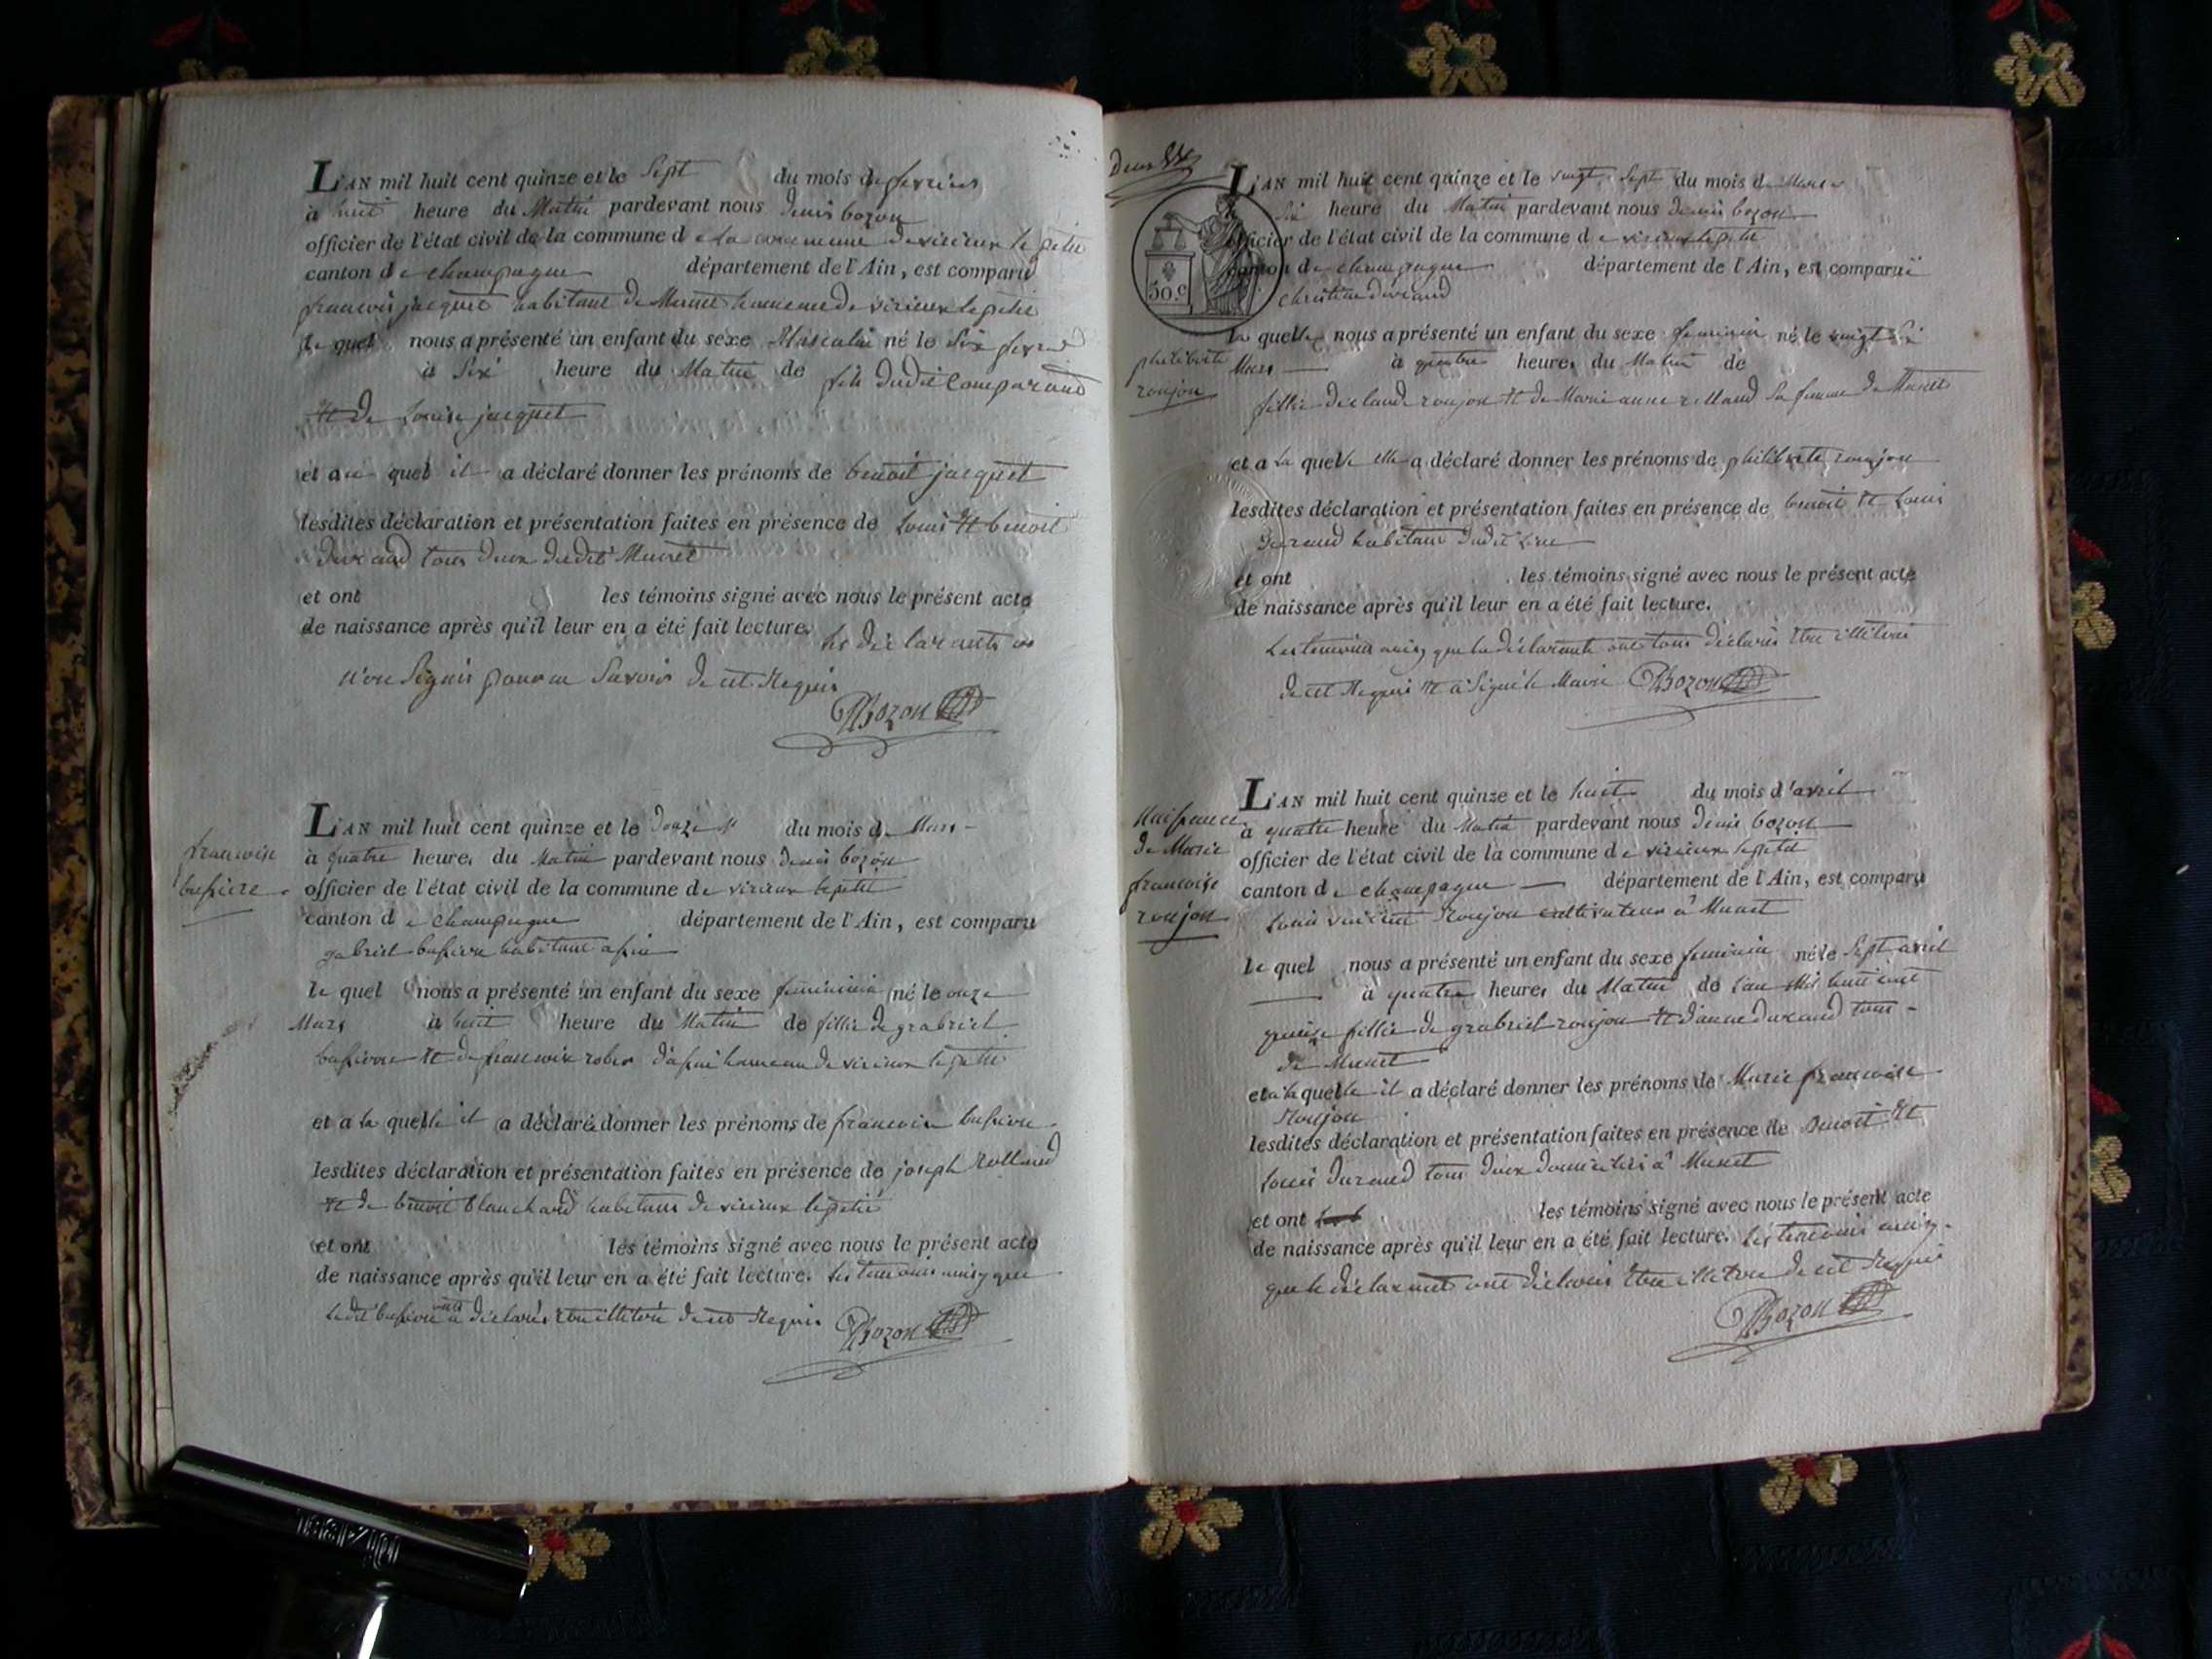 L'AN mil huit cent quinze et le Sept du mois de fevrier
à huit heure du Matin pardevant nous denis bozon
officier de l'état civil de la commune d e la commune de virieux le petit
canton d e champagne département de l'Ain, est comparu
francois jacquet habitant de Munet hameau de virieux le petit
le quel nous a présenté un enfant du sexe Masculin né le Six fevrier
à Six heure du Matin de fils dudit Comparand
et de Louise jacquet
et au quel il a déclaré donner les prénoms de benoit jacquet
lesdites déclaration et présentation faites en présence de Louis et benoit
durand tous deux dudit Munet
et ont les témoins signé avec nous le présent acte
de naissance après qu'il leur en a été fait lecture. les declarants
n'ont Signés pour ne Savoir de cet Requis
DBozon
francoise
L'AN mil huit cent quinze et le douze du mois de Mars
à quatre heure du Matin pardevant nous denis bozon
officier de l'état civil de la commune de virieux le petit
canton d e champagne département de l'Ain, est comparu
gabriel habitant
le quel nous a présenté un enfant du sexe feminin né le onze
Mars à huit heure du Matin de fille de grabriel
et de francoise hameau de virieux le petit
et a la quelle il a déclaré donner les prénoms de francoise
lesdites déclaration et présentation faites en présence de joseph Rolland
et de benoit blanchard habitans de virieux le petit
et ont les témoins signé avec nous le présent acte
de naissance après qu'il leur en a été fait lecture. les temoins ainsy que
ledit ont déclarés être illiteré de ce Requis DBozon
deux
30.c
L'AN mil huit cent quinze et le vingt Sept du mois de Mars
Six heure du Matin pardevant nous denis bozon
officier de l'état civil de la commune d e virieux le petit
canton de champagne département de l'Ain, est comparuë
christine durand
la quelle nous a présenté un enfant du sexe feminin né le vingt Six
philiberte
roujon
Mars à quatre heures du Matin de
fille de claude roujon et de Marie anne rolland Sa femme de Munet
et a la quelle elle a déclaré donner les prénoms de philiberte roujon
lesdites déclaration et présentation faites en présence de benoit et Louis
durand habitans dudit Lieu
et ont les témoins signé avec nous le présent acte
de naissance après qu'il leur en a été fait lecture.
Les temoins ainsy que la déclarante ont tous déclarés être illiteré
de cet Requis et a Signé le Maire DBozon
Naissance
de Marie
francoise
roujon
L'AN mil huit cent quinze et le huit du mois d'avril
à quatre heure du Matin pardevant nous denis bozon
officier de l'état civil de la commune d e virieux le petit
canton d e champagne département de l'Ain, est comparu
Louis vincent Roujon cultivateur à Munet
le quel nous a présenté un enfant du sexe feminin né le Sept avril
à quatre heures du Matin de l'an Mil huit cent
quinze fille de grabriel roujon et d'anne durand tous
de Munet
et a la quelle il a déclaré donner les prénoms de Marie francoise
Roujon
lesdites déclaration et présentation faites en présence de Benoit et
Louis durand tous deux domiciliés à Munet
et ont les témoins signé avec nous le présent acte
de naissance après qu'il leur en a été fait lecture. Les temoins ainsy
que le déclarant ont déclarés être illiteré de cet Requis
DBozon